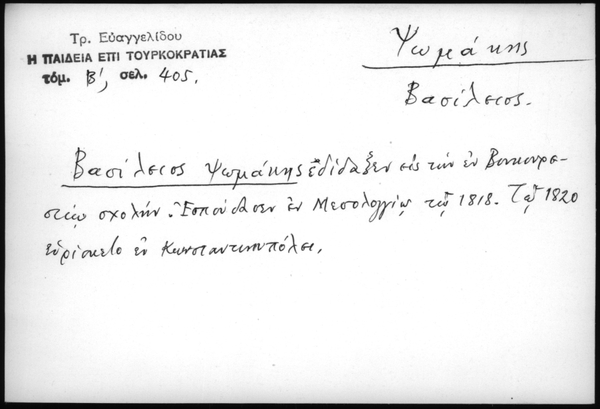 Τρ. Εὐαγγελίδου
Η ΠΑΙΔΕΙΑ ΕΠΙ ΤΟΥΡΚΟΚΡΑΤΙΑΣ
τόμ. Β', σελ. 405.
Ψωμάκης
Βασίλειος.
Βασίλειος Ψωμάκης ἐδίδαξεν εἰς τὴν ἐν Βουκουρε-
στίῳ σχολήν. Ἐσπούδασεν ἐν Μεσολογγίῳ τῷ 1818. Τῷ 1820
εὑρίσκετο ἐν Κωνσταντινουπόλει.